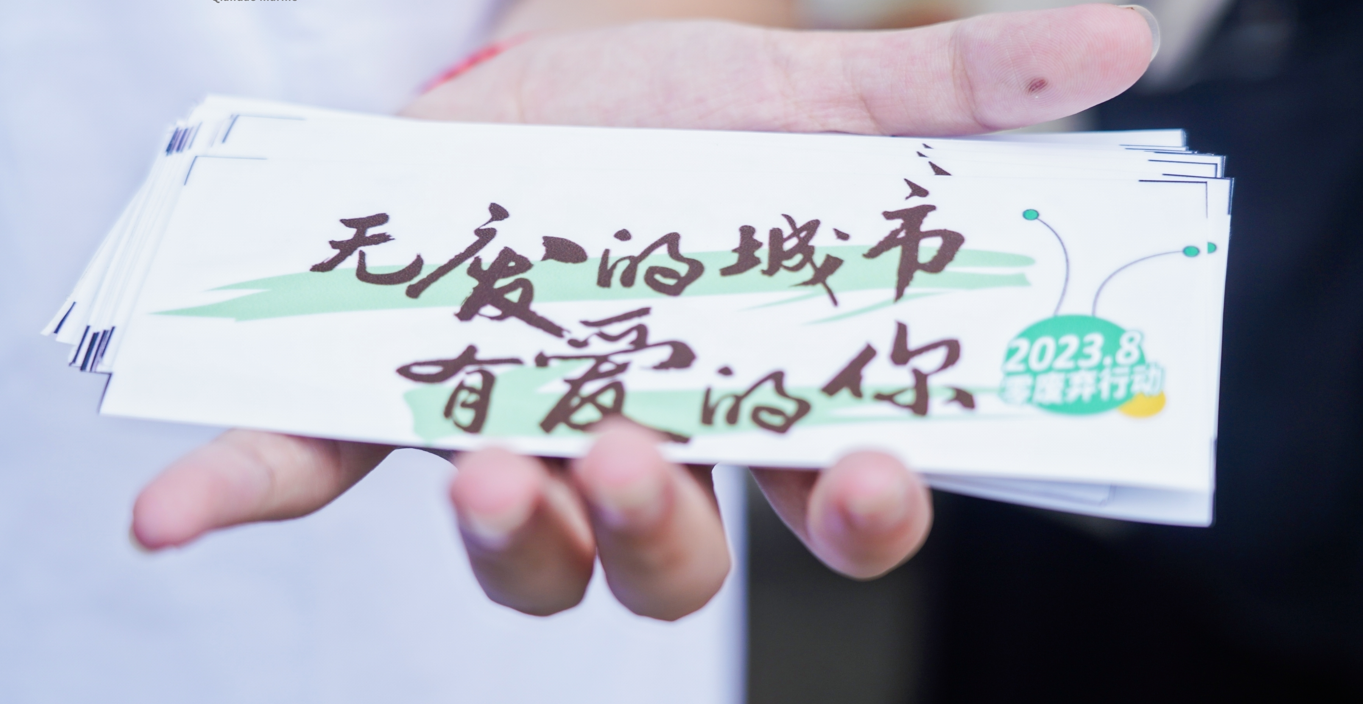 无废的城市
有爱的你
2023.8
零废弃行动